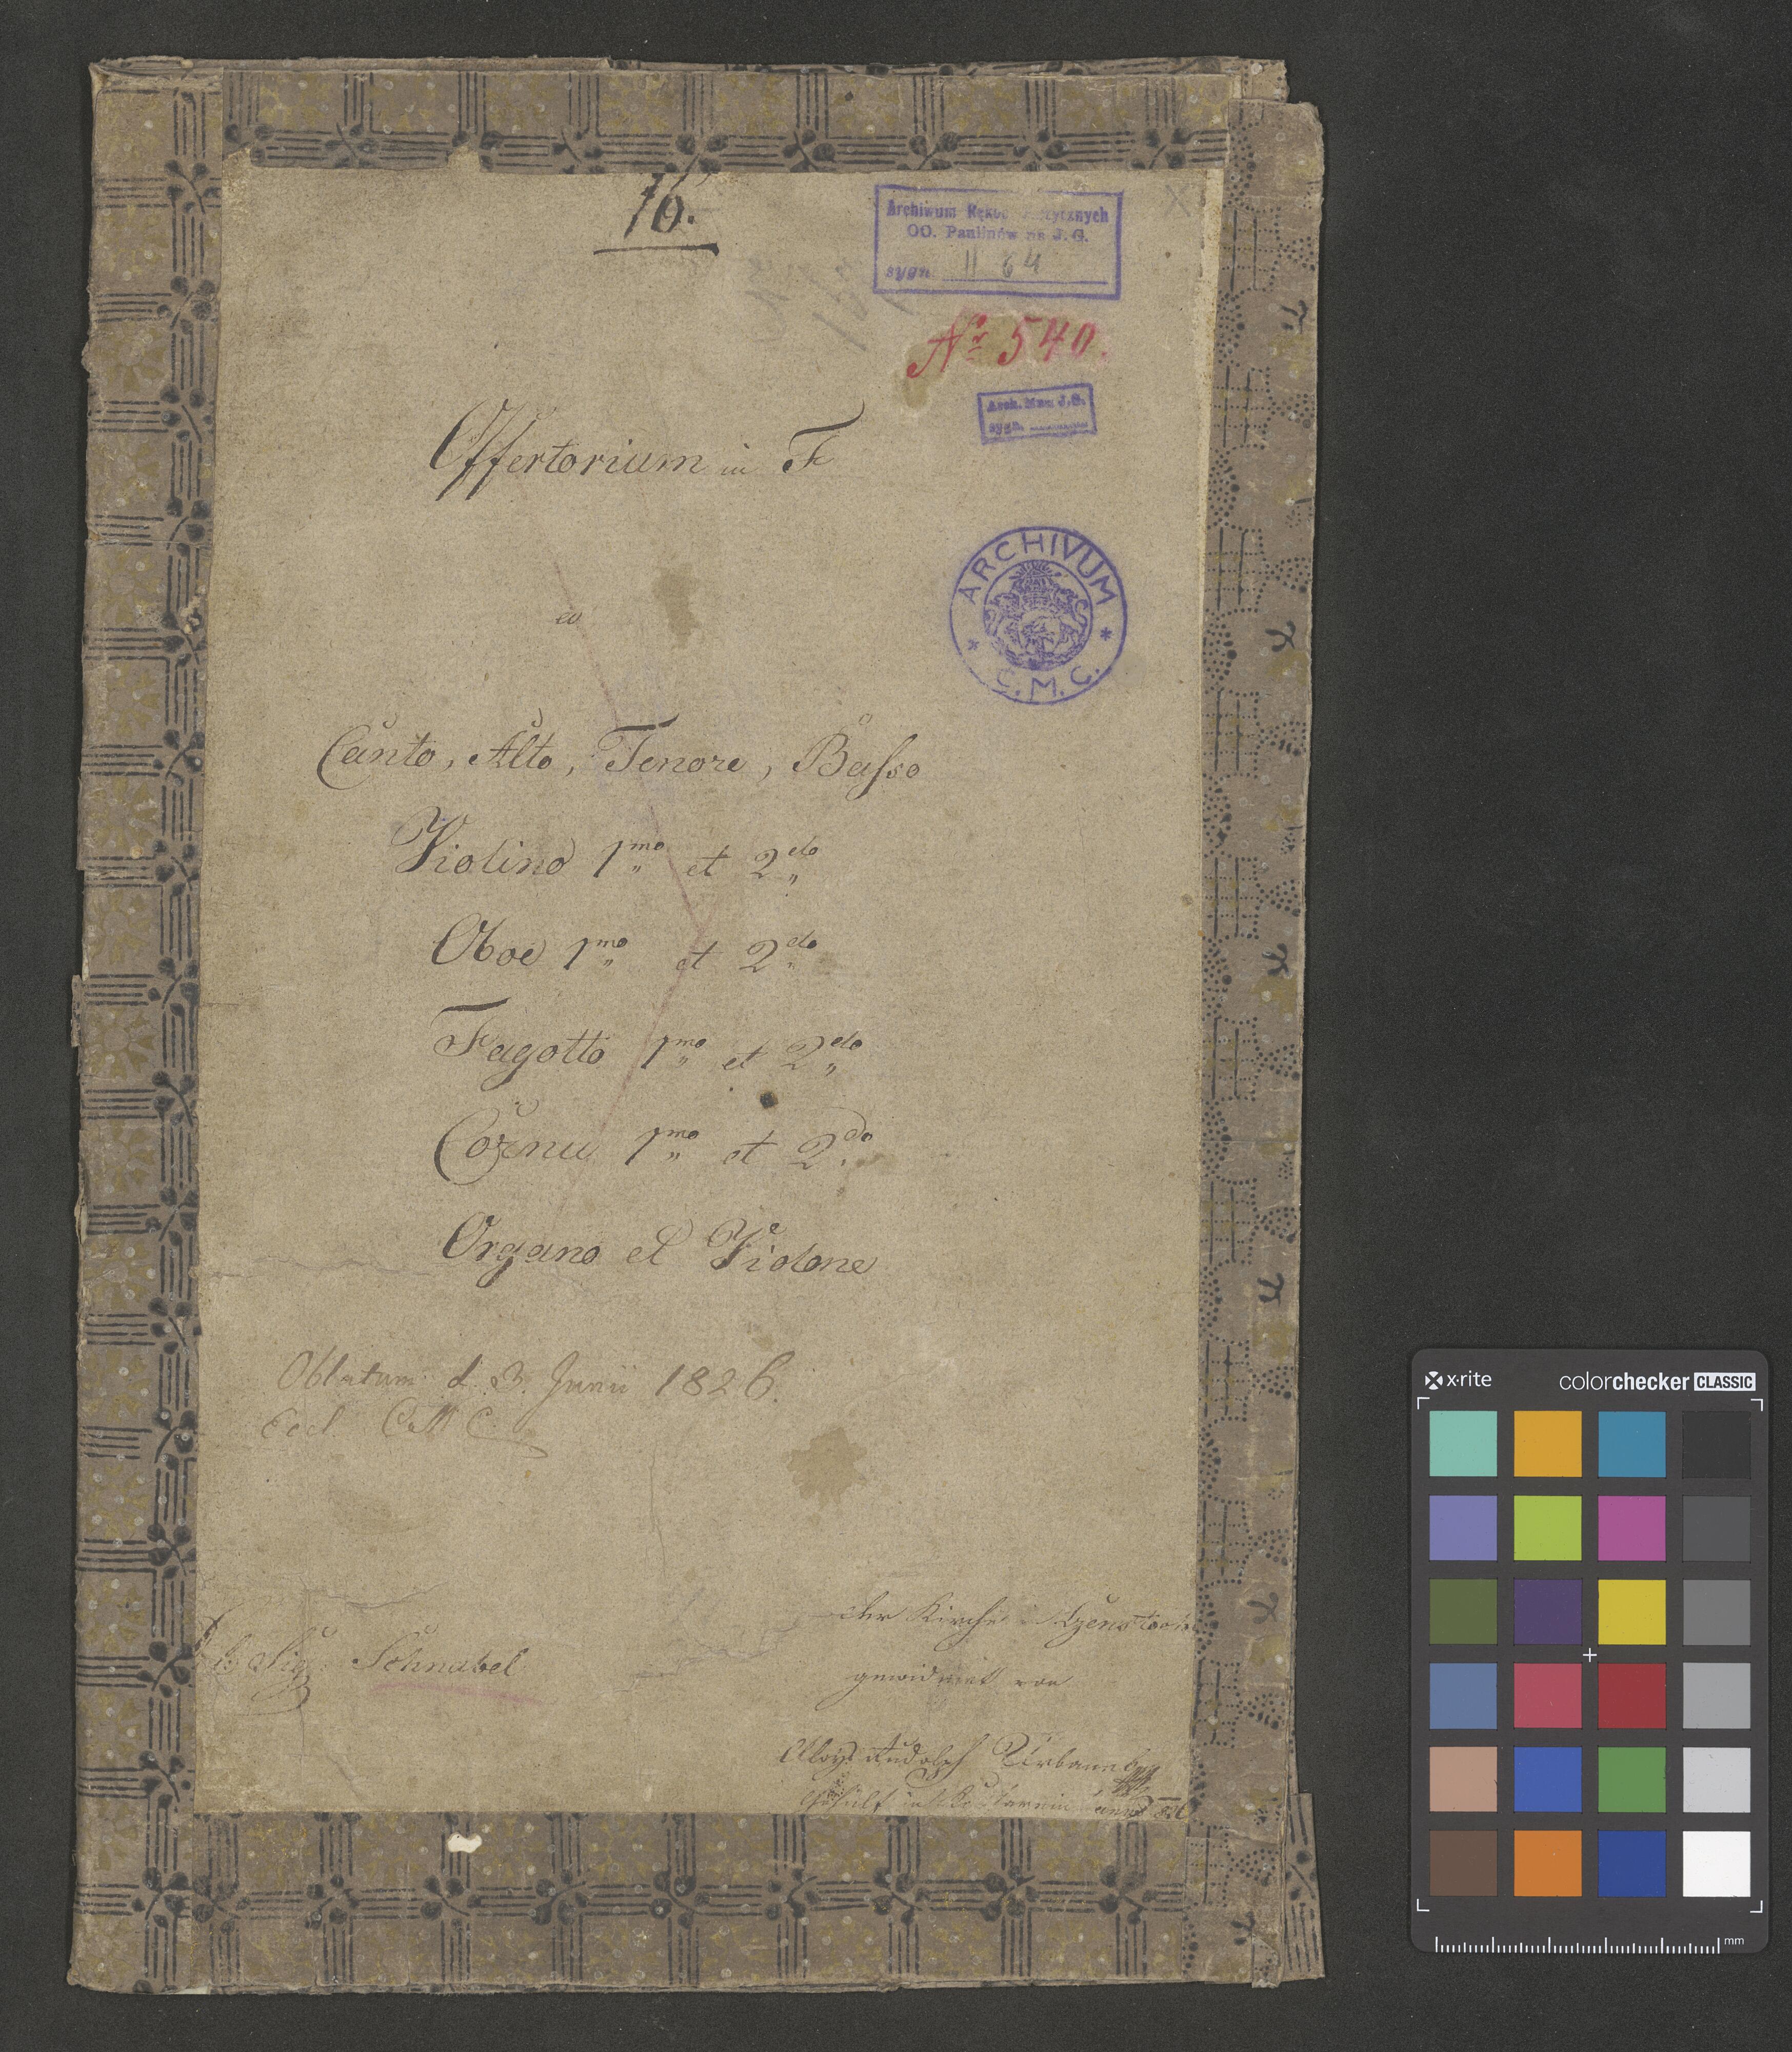 16.
Archiwum Ręko
OO. Paulinów na J. G.
sygn. II 64
Nr 540.
Arch. Muz. J. G.
sygn.
Offertorium in F
ARCHIVUM
C. M. C.
a
Canto, Alto, Tenore, Basso
Violino 1mo et 2do
Oboe 1mo et 2do
Fagotto 1mo et 2do
Cornu 1mo et 2do
Organo et Violone
Oblatum d. 3. Junii 1826.
Eccl. C M C.
der Kirche
Del Sigr: Schnabel
gewidmet von
Aloys Rudolph Urbanek
x-rite
colorchecker CLASSIC
mm